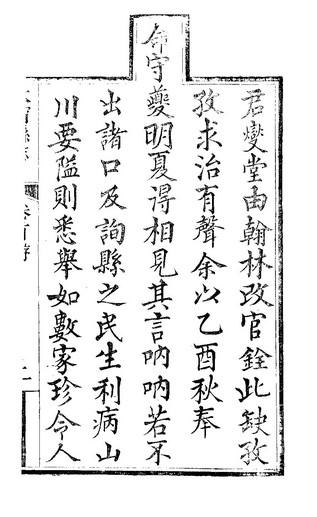 君燮堂由翰林改官銓此缺孜
孜求治有聲余以乙酉秋奉
命守夔明夏得相見其言吶吶若不
出諸口及詢縣之民生利病山
川要隘則悉舉如數家珍令人